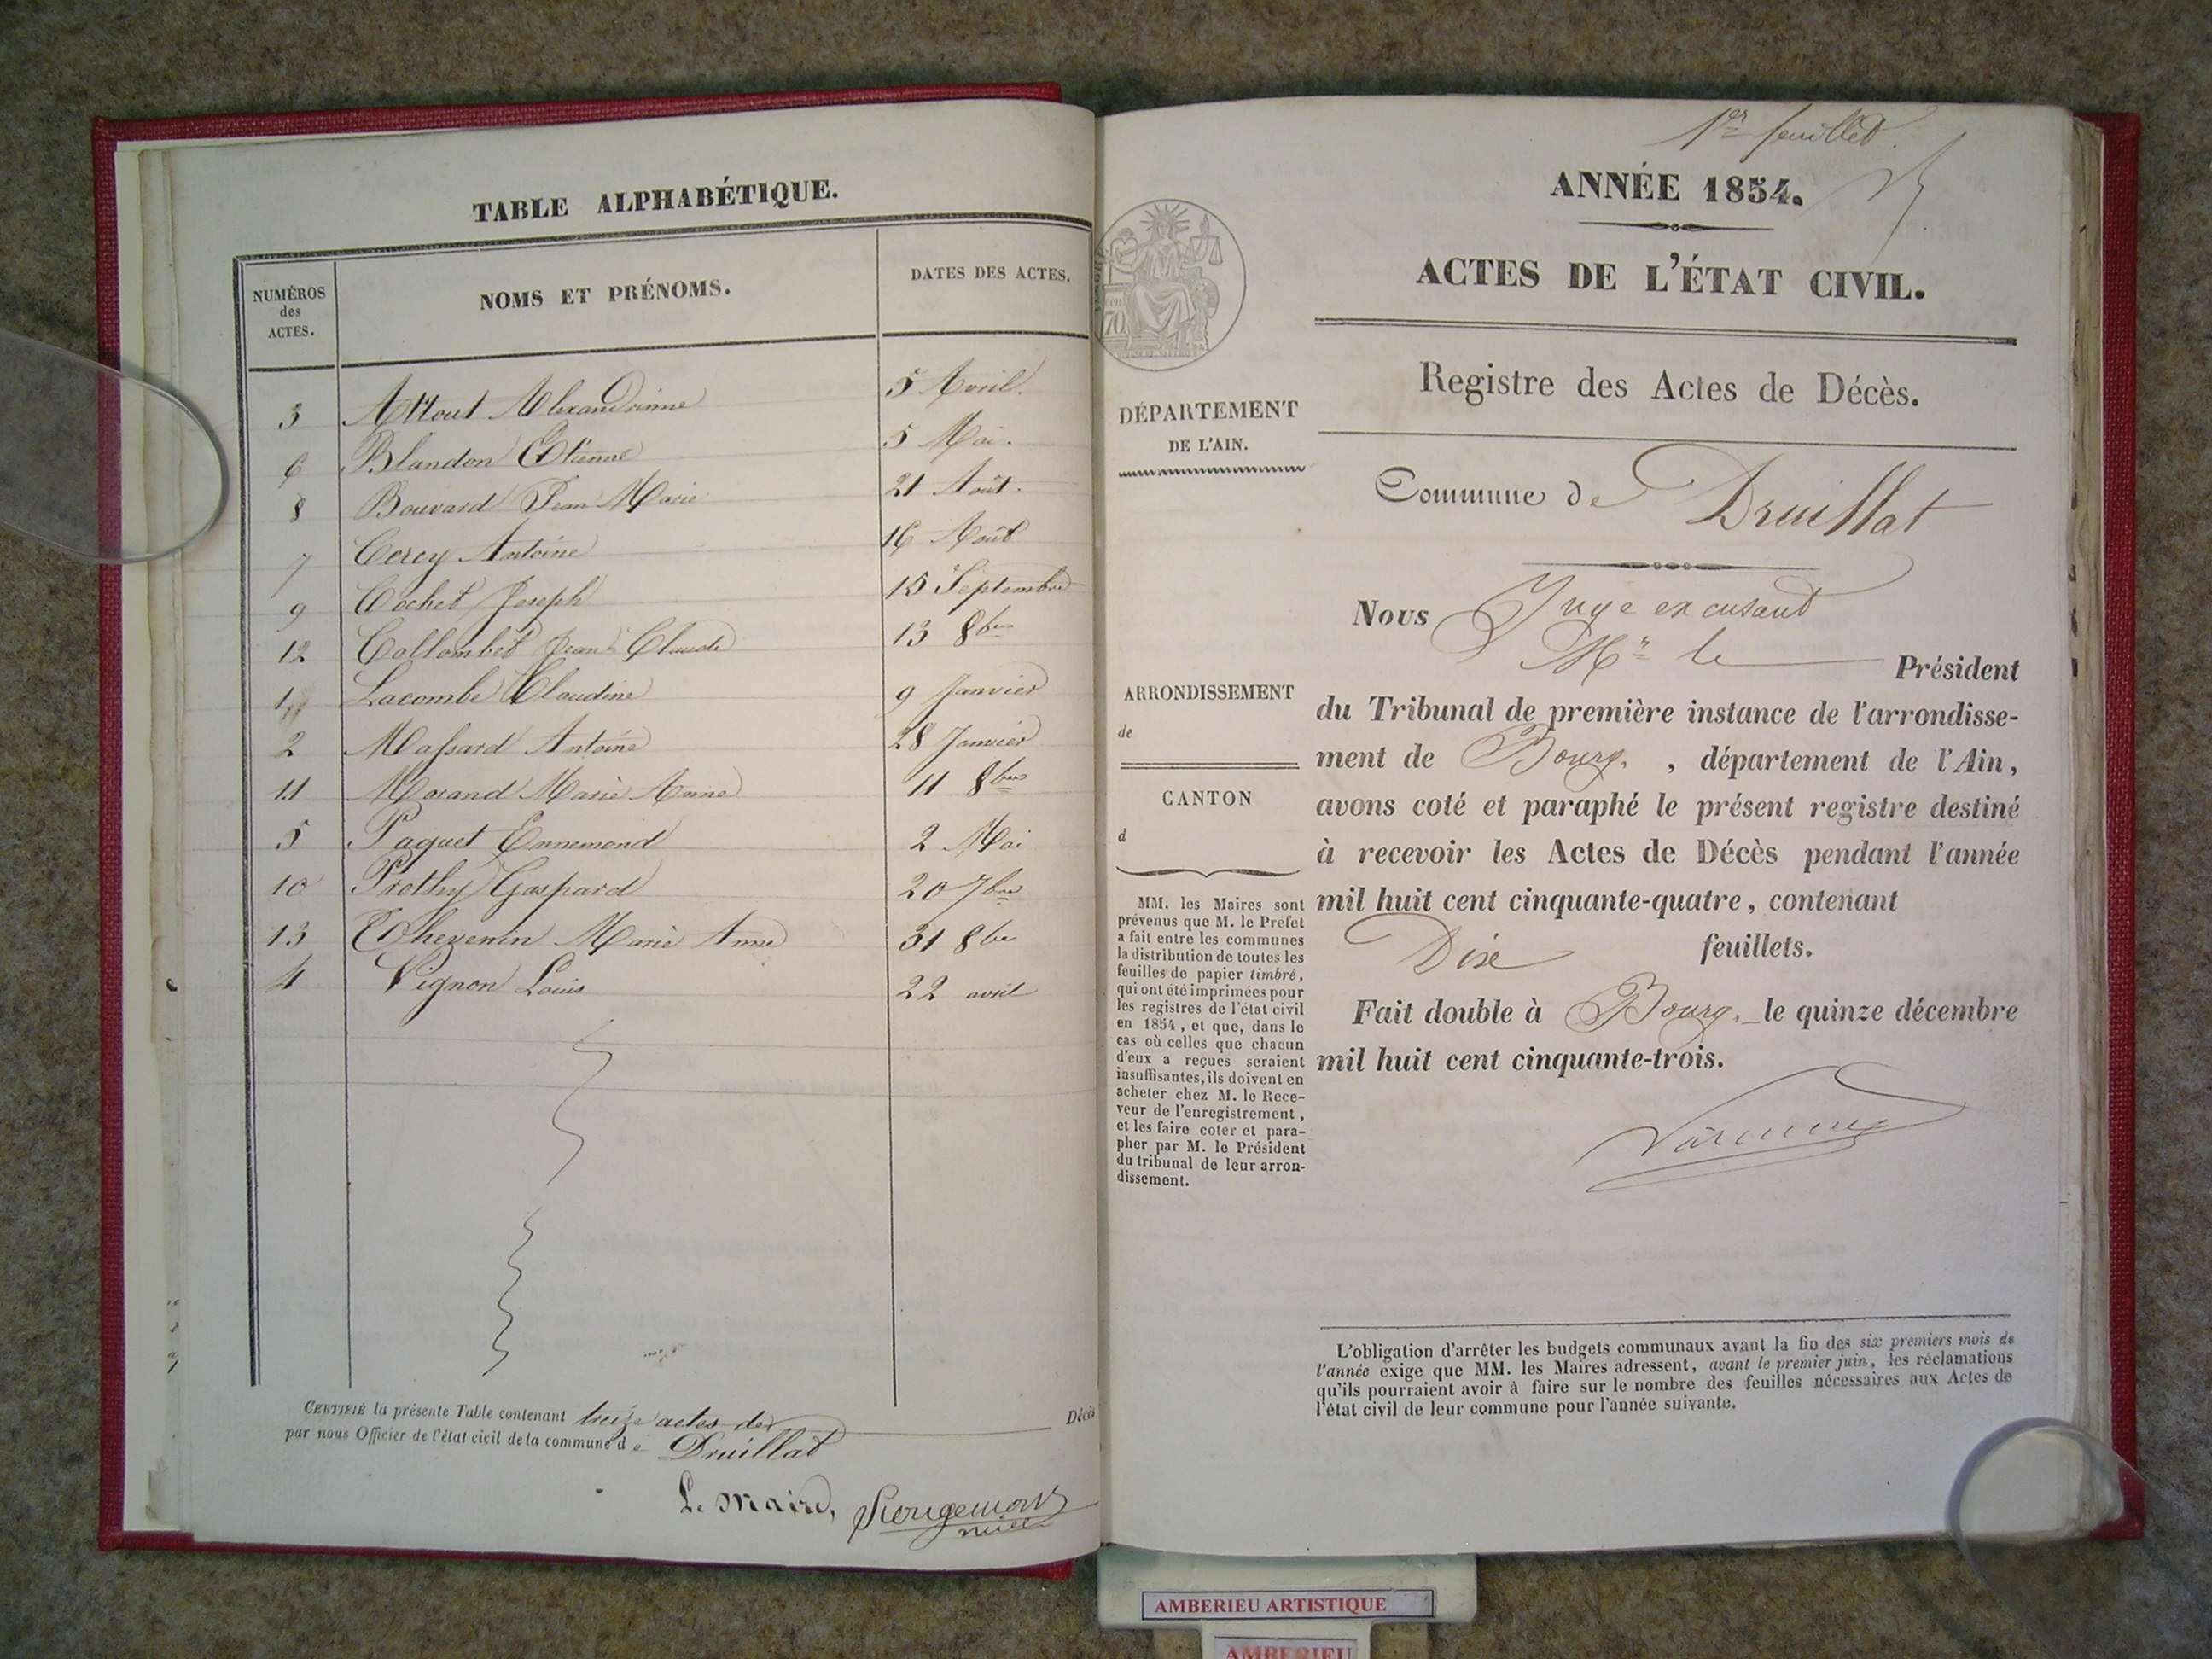 TABLE ALPHABÉTIQUE.
NUMÉROS des ACTES. NOMS ET PRÉNOMS. DATES DES ACTES.
3 Alexandrinne 5 Avril.
6 Blandon Etienne 5 Mai.
8 Bouvard Jean Marie 21 Août.
7 Cercy Antoine 16 Août
9 Cochet Joseph 15 Septembre
12 Collombet Jean Claude 13 8bre
1 Lacombe Claudine 9 Janvier
2 Massard Antoine 28 Janvier
11 Morand Marie Anne 11 8bre
5 Paquet Ennemond 2 Mai
10 Prothy Gaspard 20 7bre
13 Thevenin Marie Anne 31 8bre
4 Vignon Louis 22 avril
CERTIFIÉ la présente Table contenant treize actes de Décès
par nous Officier de l'état civil de la commune de Druillat
Le maire, Rougemont
1er feuillet.
ANNÉE 1854.
ACTES DE L'ÉTAT CIVIL.
Registre des Actes de Décès.
DÉPARTEMENT
DE L'AIN.
Commune de Druillat
Nous Juge excusant
Mr le Président
du Tribunal de première instance de l'arrondisse-
ment de Bourg, département de l'Ain,
avons coté et paraphé le présent registre destiné
à recevoir les Actes de Décès pendant l'année
mil huit cent cinquante-quatre, contenant
Dix feuillets.
Fait double à Bourg, le quinze décembre
mil huit cent cinquante-trois.
ARRONDISSEMENT
de
CANTON
d
MM. les Maires sont
prévenus que M. le Préfet
a fait entre les communes
la distribution de toutes les
feuilles de papier timbré,
qui ont été imprimées pour
les registres de l'état civil
en 1854, et que, dans le
cas où celles que chacun
d'eux a reçues seraient
insuffisantes, ils doivent en
acheter chez M. le Rece-
veur de l'enregistrement,
et les faire coter et para-
pher par M. le Président
du tribunal de leur arron-
dissement.
L'obligation d'arrêter les budgets communaux avant la fin des six premiers mois de
l'année exige que MM. les Maires adressent, avant le premier juin, les réclamations
qu'ils pourraient avoir à faire sur le nombre des feuilles nécessaires aux Actes de
l'état civil de leur commune pour l'année suivante.
AMBERIEU ARTISTIQUE
AMBERIEU